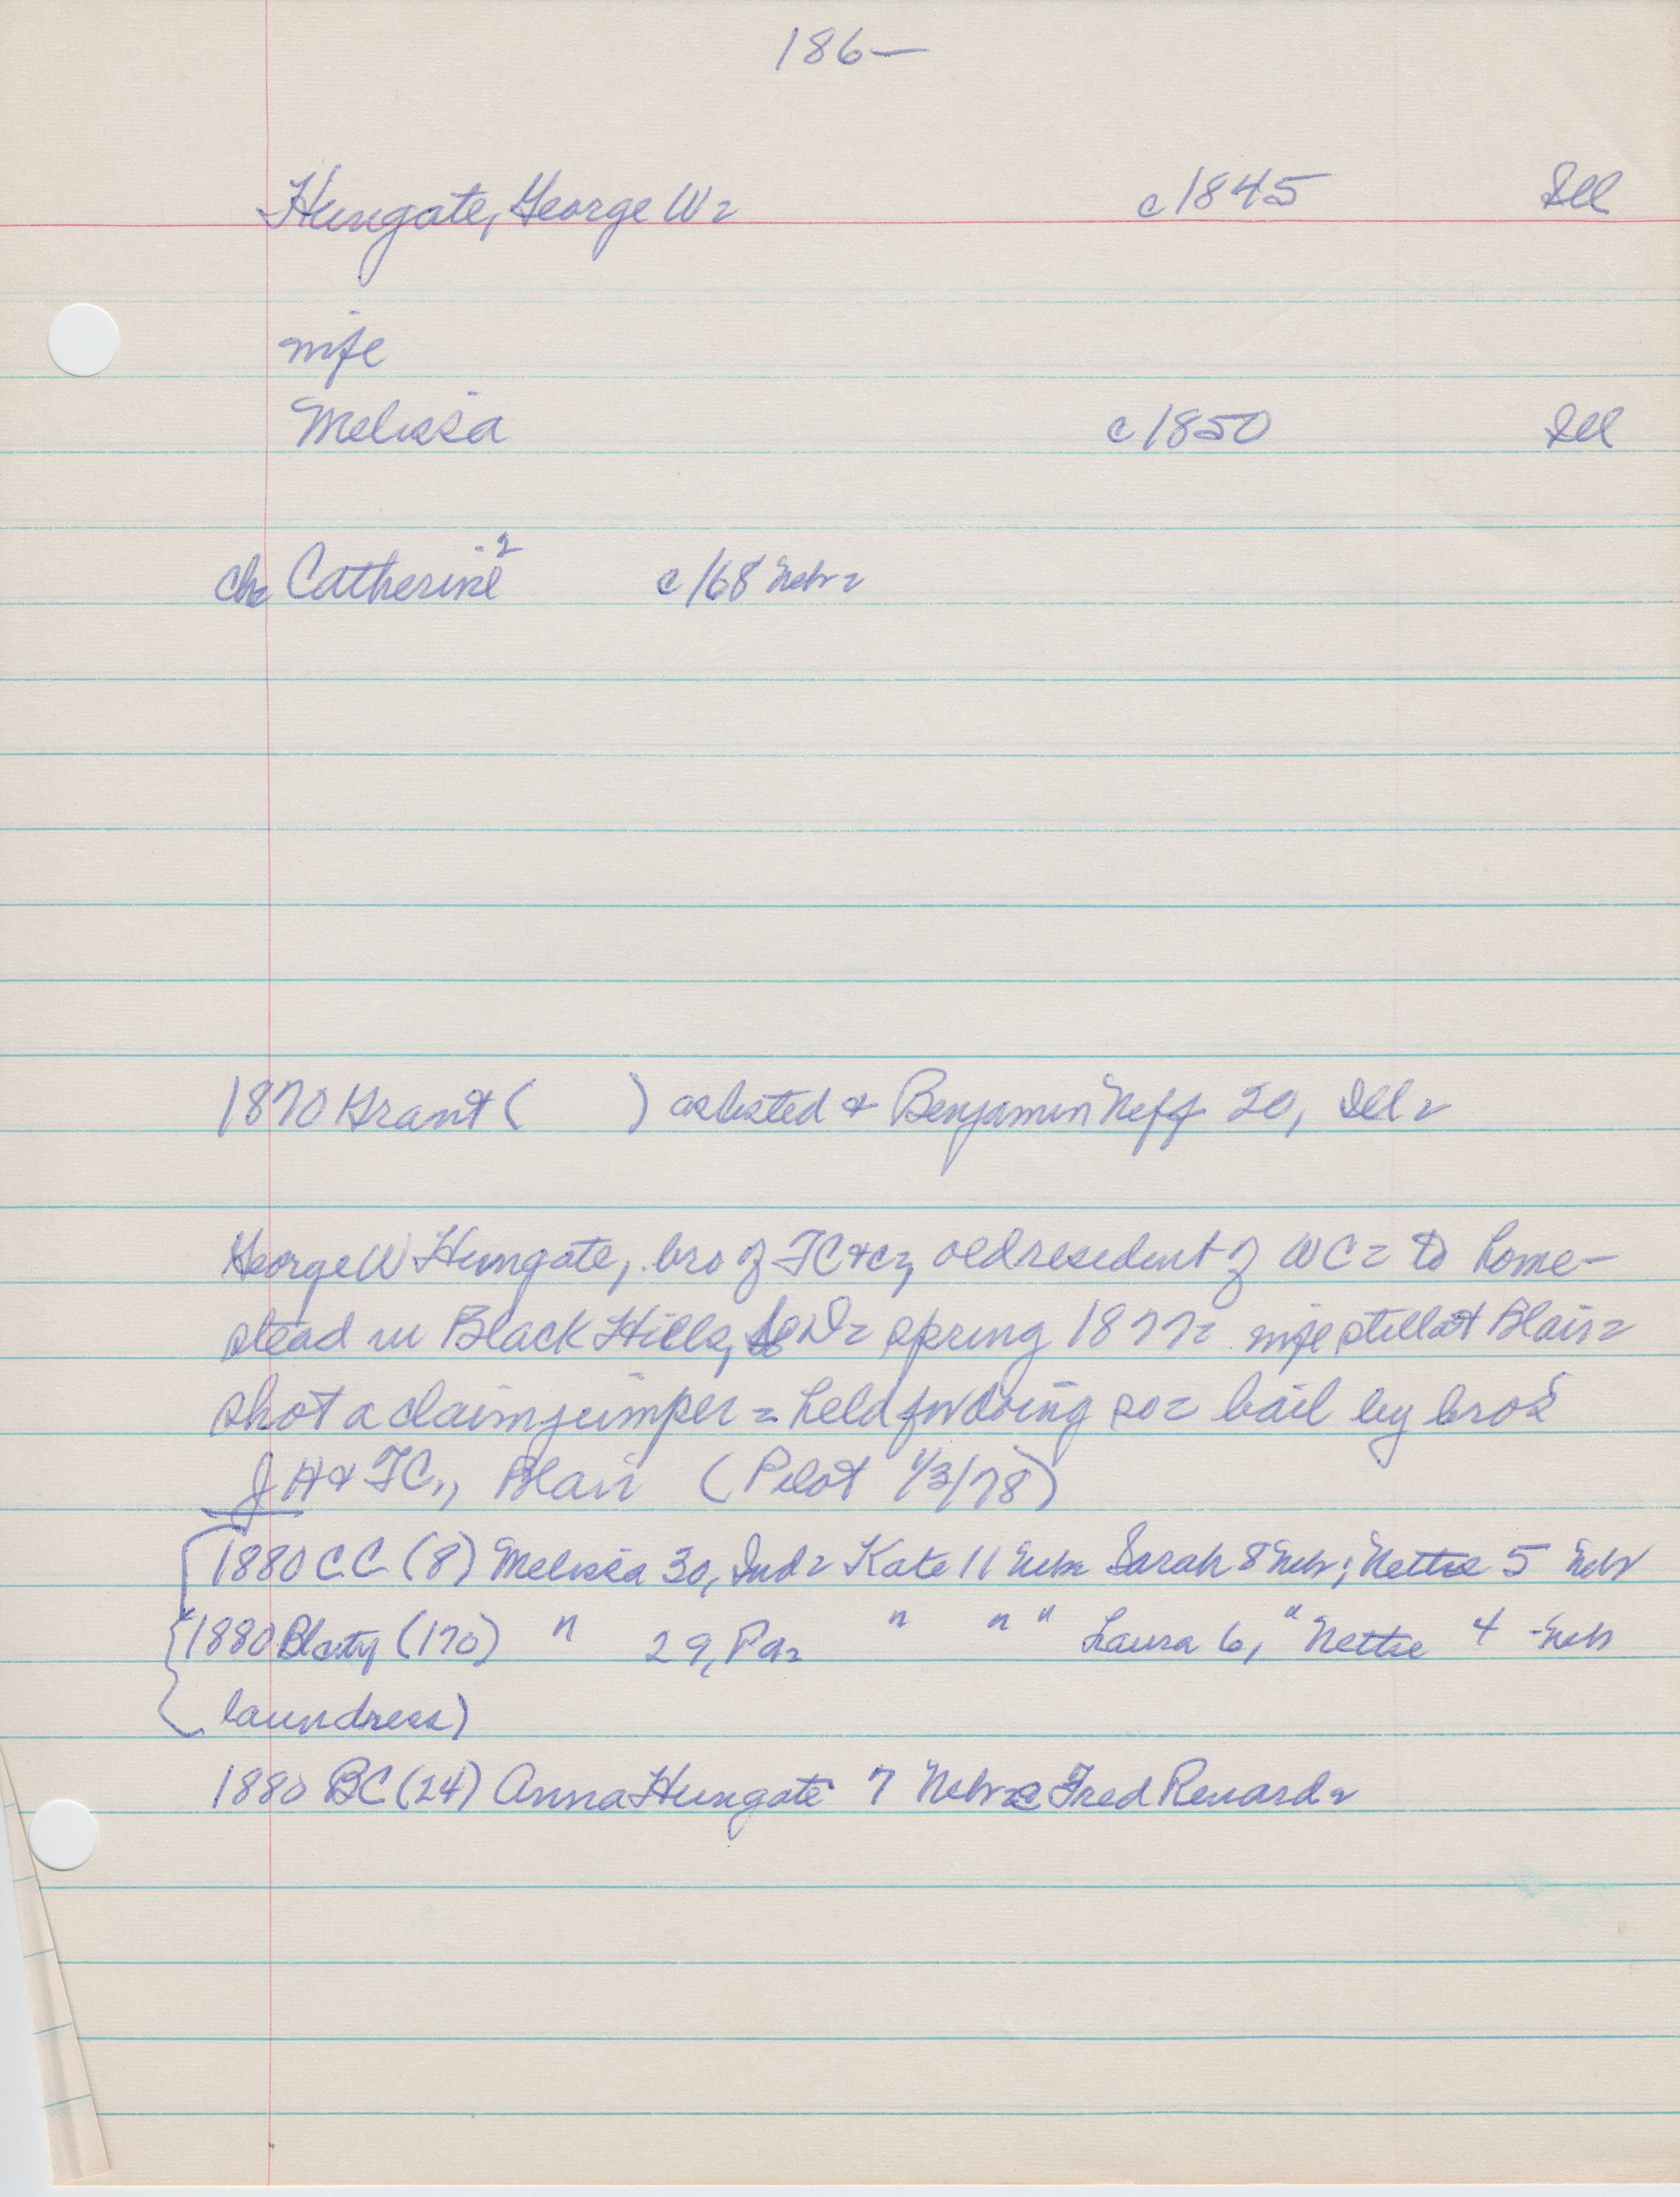 186—
Hungate, George W= c1845 Ill
wife
Melissa c1850 Ill
ch= Catherine² c/68 Nebr=
1870 Grant ( ) as listed & Benjamin Neff 20, Ill=
George W Hungate, bro of TC &c, old resident of WC= to home-
stead in Black Hills, D= spring 1877= wife still at Blair=
shot a claim jumper = held for doing so= bail by bros
J H & TC, Blair (Pilot 1/3/78)
1880 C.C. (8) Melissa 30, Ind= Kate 11 Nebr= Sarah 8 Nebr; Nettie 5 Nebr
1880 Bl city (170) " 29, Pa= " " " Laura 6, " Nettie 4 - Nebr
laundress)
1880 BC (24) Anna Hungate 7 Nebr= @ Fred Renard=